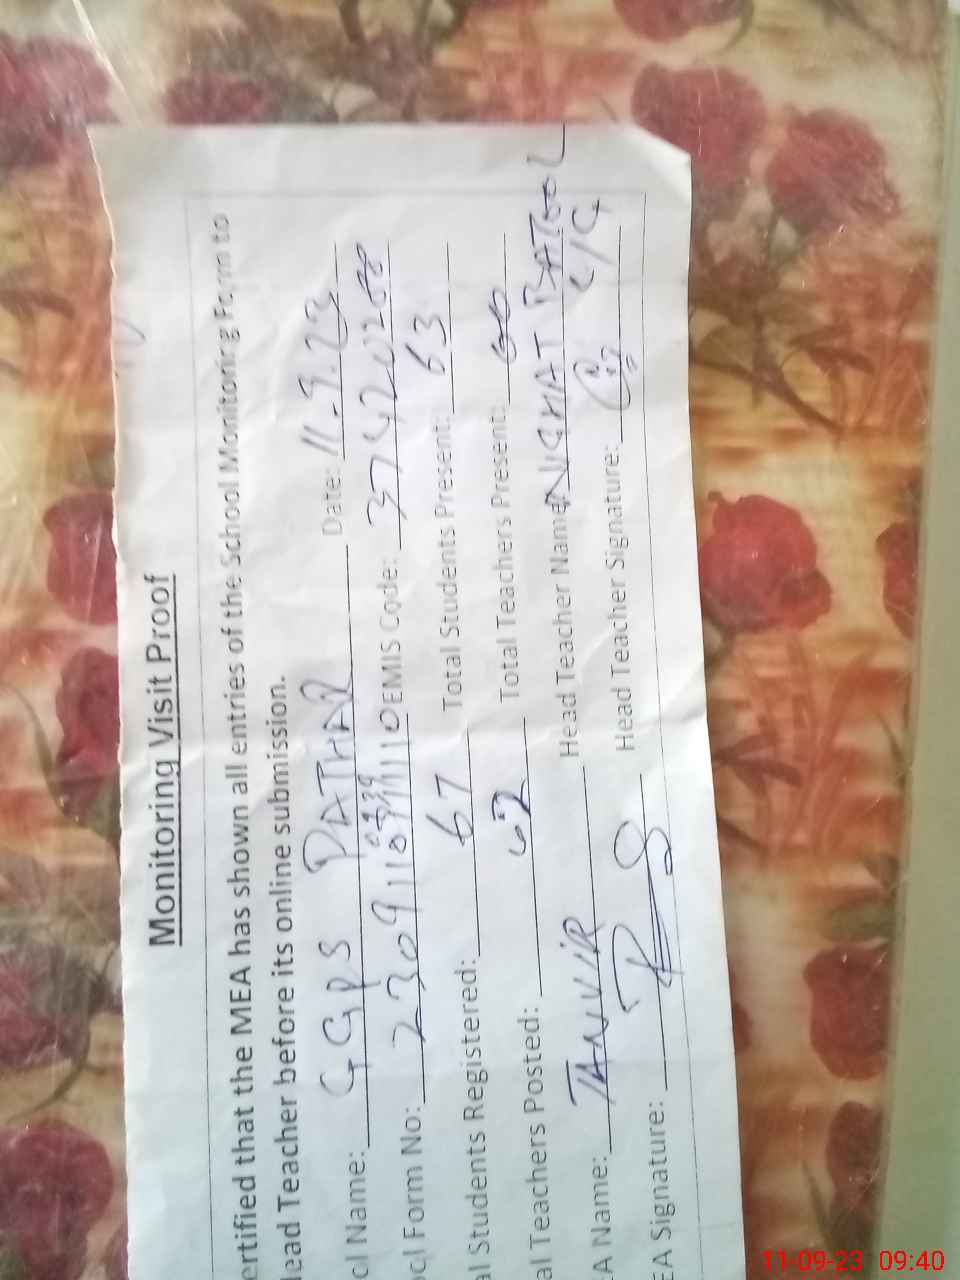 Monitoring Visit Proof
ertified that the MEA has shown all entries of the School Monitoring Form to
lead Teacher before its online submission.
ol Name: GGPS PATHAR Date: 11.9.23
ol Form No: EMIS Code:
al Students Registered: 67 Total Students Present: 63
al Teachers Posted: 02 Total Teachers Present:
A Name: TANVIR Head Teacher Name: NIGHAT BATOOL
EA Signature: Head Teacher Signature:
11-09-23 09:40